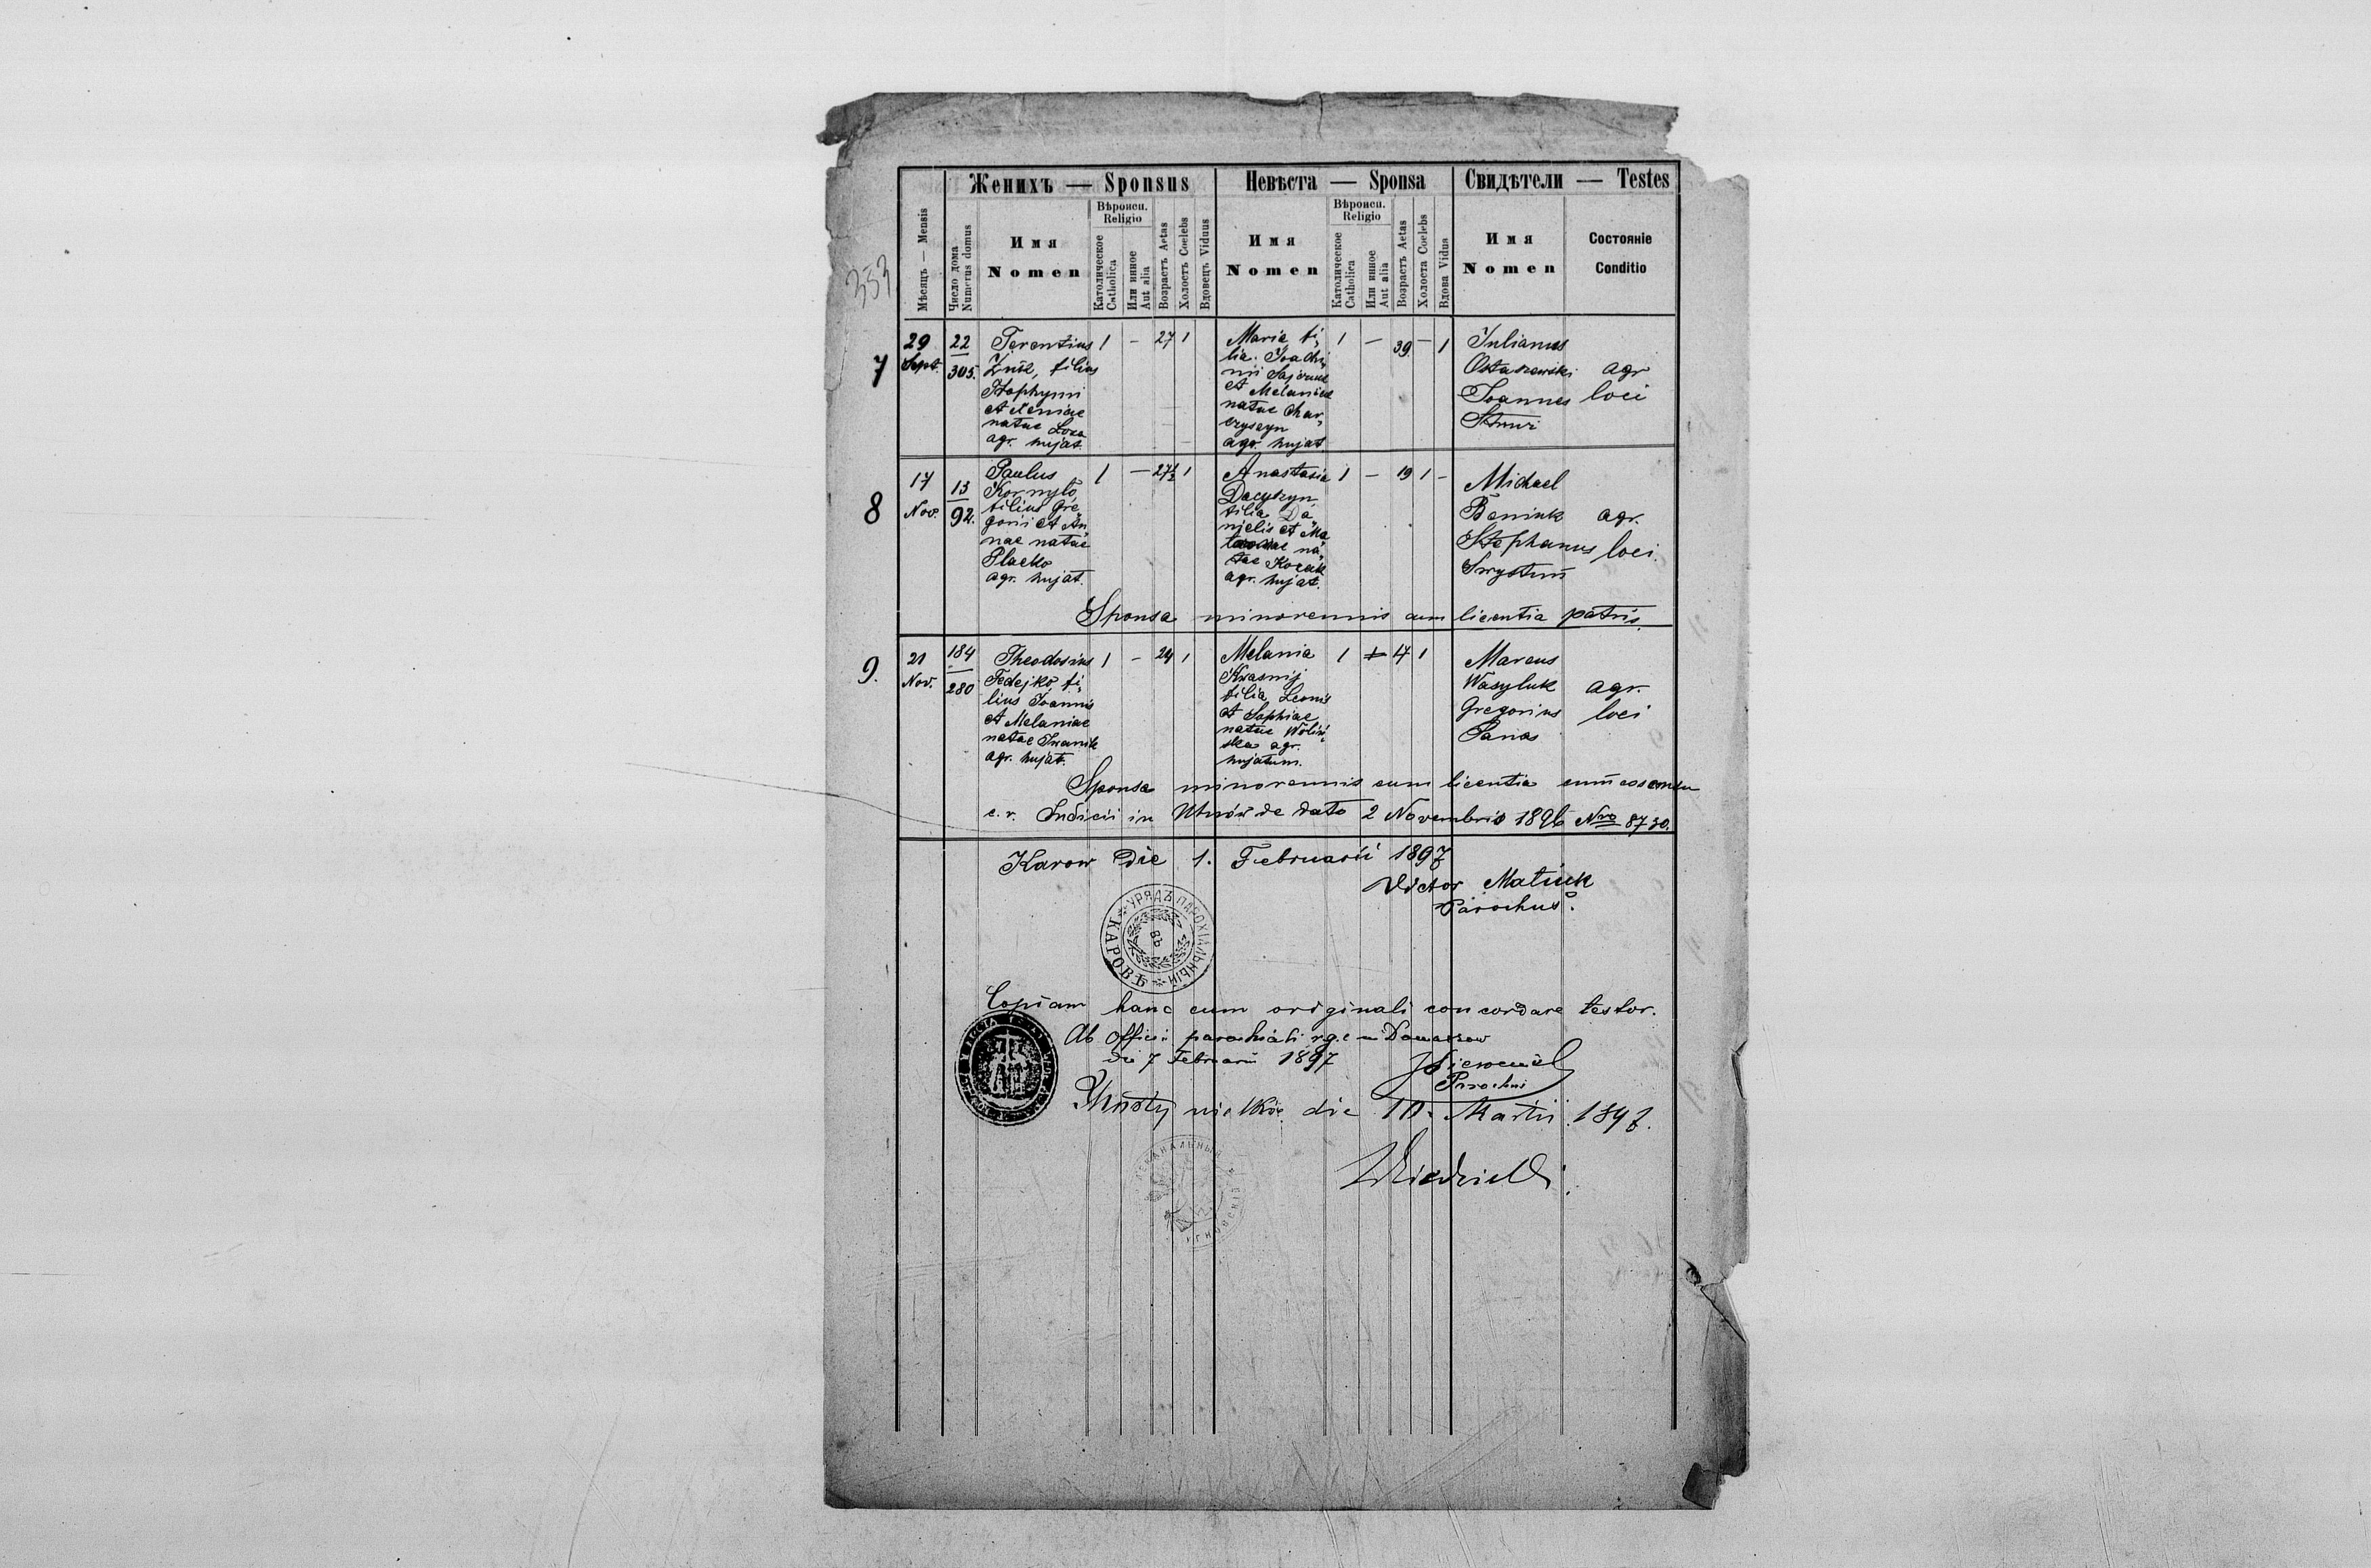 Женихъ — Sponsus
Невѣста — Sponsa
Свидѣтели — Testes
Мѣсяцъ — Mensis
Число дома
Numerus domus
Имя
Nomen
Вѣроисп.
Religio
Католическое
Catholica
Или инное
Aut alia
Возрастъ Aetas
Холостъ Coelebs
Вдовецъ Viduus
Имя
Nomen
Вѣроисп.
Religio
Католическое
Catholica
Или инное
Aut alia
Возрастъ Aetas
Холоста Coelebs
Вдова Vidua
Имя
Nomen
Состояніе
Conditio
353
7
29
Sept.
22
305.
Terentius
filius
et Xeniae
natae Loza
agr. hujat.
1 — 27 1
Maria fi„
lia Joachi„
mi
et Melaniae
natae Char„
czyszyn
agr. hujat.
1 — 39 — 1
Julianus
Ostaszewski
Joannes
agr
loci
8
17
Nov.
13
92.
Paulus
Kornyło
filius Gre„
gorii et An„
nae natae
Placko
agr. hujat.
1 — 27½ 1
Anastasia
Dacyszyn
filia Da„
nielis et Ma„
na„
tae Kozak
agr. hujat.
1 — 19 1 —
Michael
Beniuk
Stephanus
agr.
loci.
Sponsa minorennis cum licentia patris.
9.
21
Nov.
184
280
Theodosius
Fedejko fi„
lius Joannis
et Melaniae
natae Iwanik
agr. hujat.
1 — 24 1
Melania
Krasnij
filia Leonis
et Sophiae
natae Woliń„
ska agr.
hujatum.
1 17 1
Marcus
Wasyluk
Gregorius
Panas
agr.
loci
Sponsa minorennis cum licentia cum
c. r. Judicii in Uhnów de dato 2 Novembris 1896 Nro 8730.
Karow die 1. Februarii 1897
Victor Matiuk
Parochus.
УРЯДЪ ПАРОХІАЛЬНЫЙ
ВЪ
КАРОВѢ
Copiam hanc cum originali concordare testor.
Ab officii parochiali r.g.c. in Domaszow
die 7 Februarii 1897
Parochus
die 10. Martii 1897.